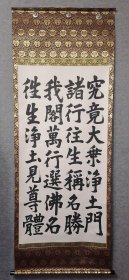 究竟大乗浄土門
諸行往生稱名勝
我閣萬行選佛名
往生浄土見尊體